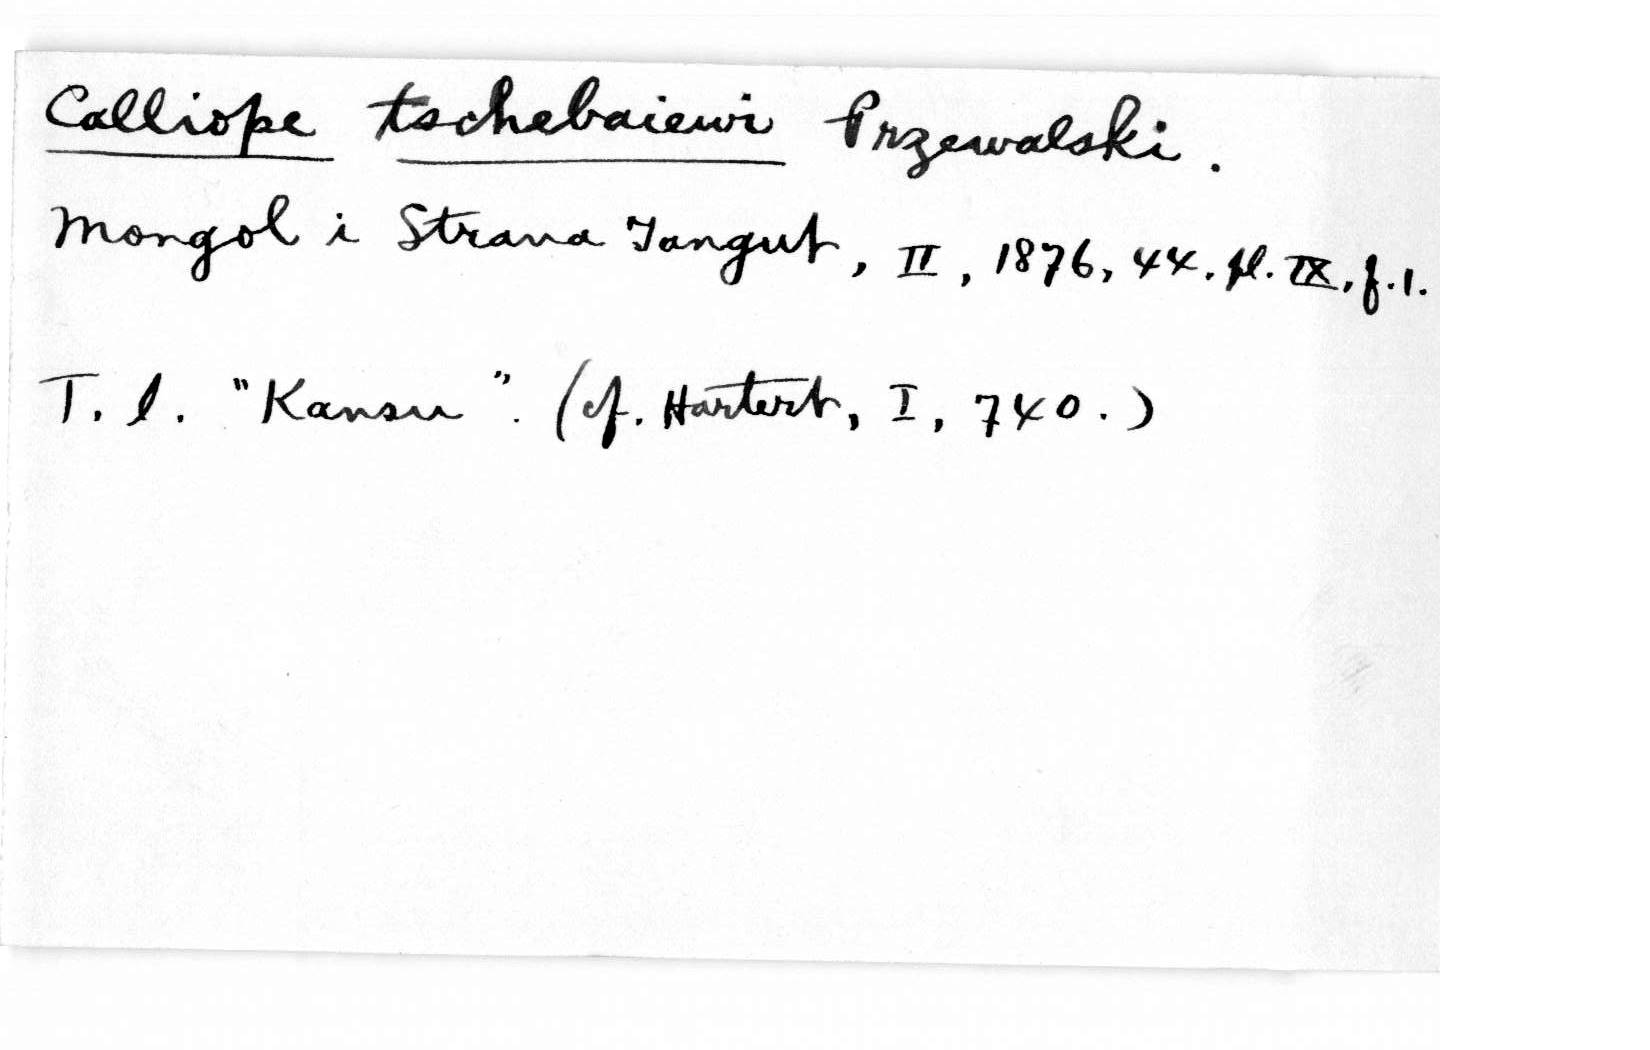 Calliope tschebaiewi Przewalski.
Mongol i Strana Tangut, II, 1876, 44. pl. IX, f. 1.
T. l. "Kansu". (cf. Hartert, I, 740.)